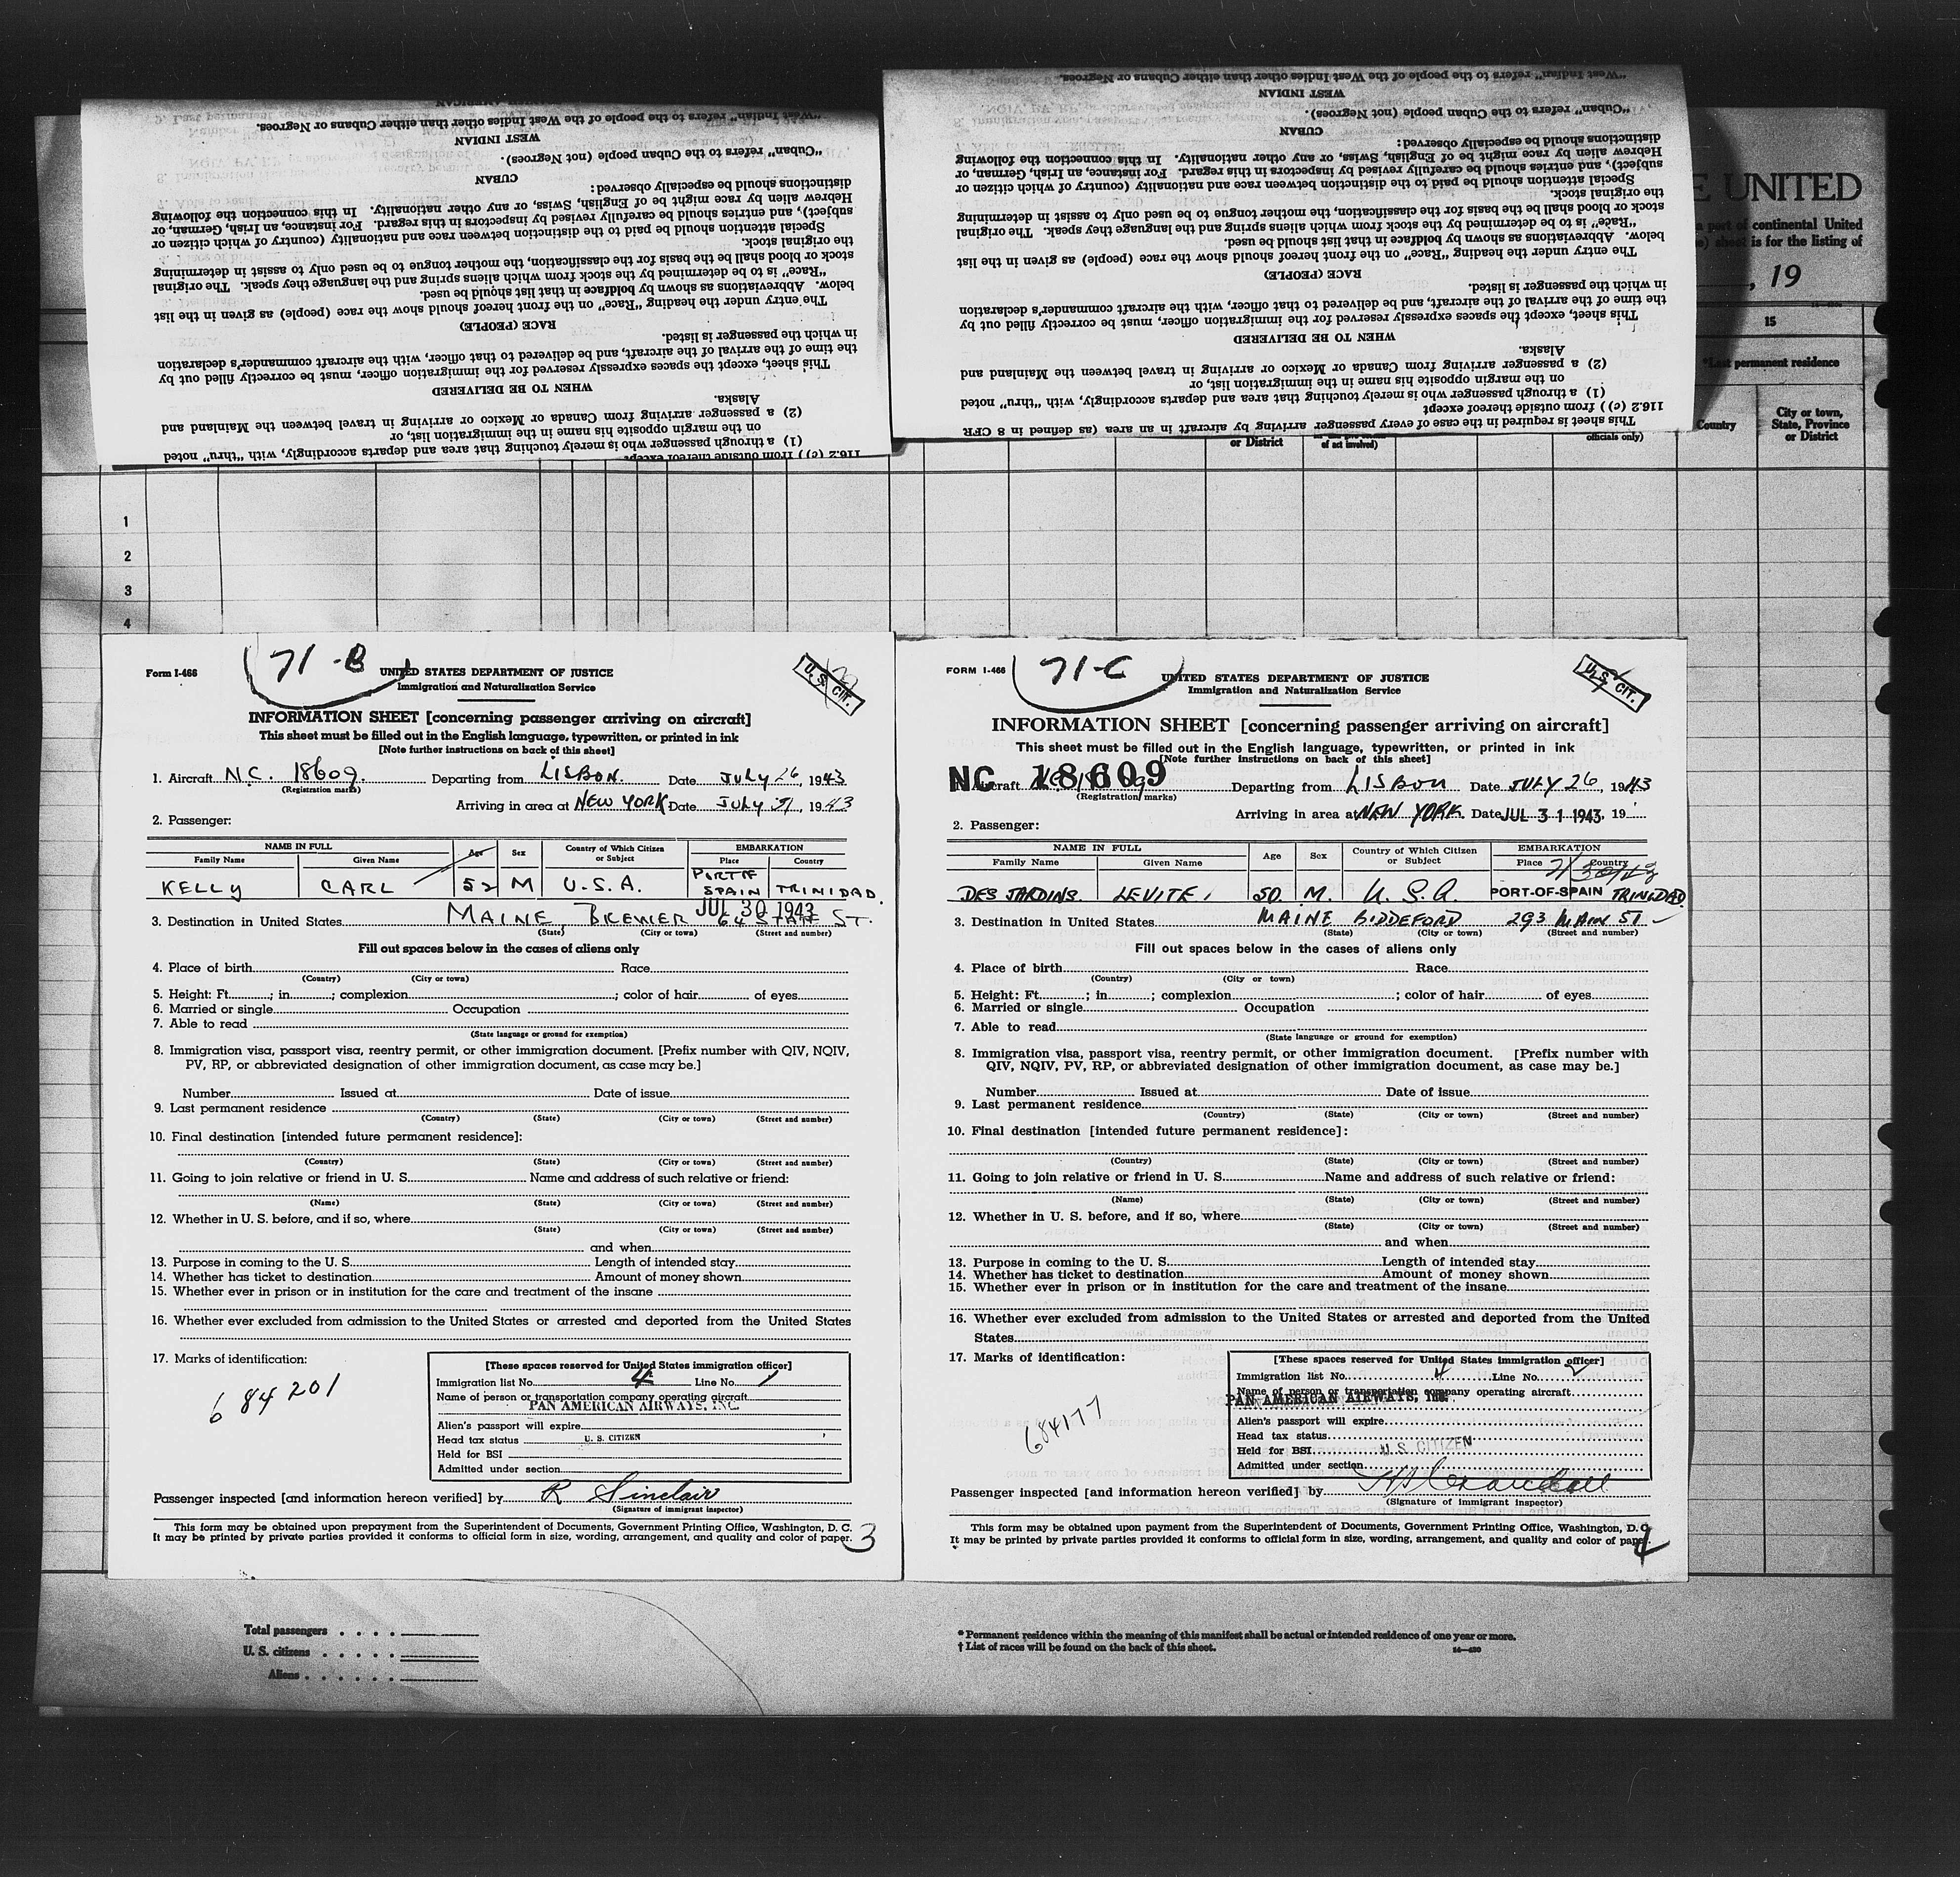 "West Indian" refers to the people of the West Indies other than either Cubans or Negroes.
WEST INDIAN
"Cuban" refers to the Cuban people (not Negroes).
CUBAN
distinctions should be especially observed:
Hebrew alien by race might be of English, Swiss, or any other nationality. In this connection the following
subject), and entries should be carefully revised by inspectors in this regard. For instance, an Irish, German, or
Special attention should be paid to the distinction between race and nationality (country of which citizen or
the original stock.
stock or blood shall be the basis for the classification, the mother tongue to be used only to assist in determining
"Race" is to be determined by the stock from which aliens spring and the language they speak. The original
below. Abbreviations as shown by boldface in that list should be used.
The entry under the heading "Race" on the front hereof should show the race (people) as given in the list
RACE (PEOPLE)
in which the passenger is listed.
the time of the arrival of the aircraft, and be delivered to that officer, with the aircraft commander's declaration
This sheet, except the spaces expressly reserved for the immigration officer, must be correctly filled out by
WHEN TO BE DELIVERED
Alaska.
(2) a passenger arriving from Canada or Mexico or arriving in travel between the Mainland and
on the margin opposite his name in the immigration list, or
(1) a through passenger who is merely touching that area and departs accordingly, with "thru" noted
116.2 (c)) from outside thereof except
"West Indian" refers to the people of the West Indies other than either Cubans or Negroes.
WEST INDIAN
"Cuban" refers to the Cuban people (not Negroes).
CUBAN
distinctions should be especially observed:
Hebrew alien by race might be of English, Swiss, or any other nationality. In this connection the following
subject), and entries should be carefully revised by inspectors in this regard. For instance, an Irish, German, or
Special attention should be paid to the distinction between race and nationality (country of which citizen or
the original stock.
stock or blood shall be the basis for the classification, the mother tongue to be used only to assist in determining
"Race" is to be determined by the stock from which aliens spring and the language they speak. The original
below. Abbreviations as shown by boldface in that list should be used.
The entry under the heading "Race" on the front hereof should show the race (people) as given in the list
RACE (PEOPLE)
in which the passenger is listed.
the time of the arrival of the aircraft, and be delivered to that officer, with the aircraft commander's declaration
This sheet, except the spaces expressly reserved for the immigration officer, must be correctly filled out by
WHEN TO BE DELIVERED
Alaska.
(2) a passenger arriving from Canada or Mexico or arriving in travel between the Mainland and
on the margin opposite his name in the immigration list, or
(1) a through passenger who is merely touching that area and departs accordingly, with "thru" noted
116.2 (c)) from outside thereof except
This sheet is required in the case of every passenger arriving by aircraft in an area (as defined in 8 CFR
E UNITED
a part of continental United
sheet is for the listing of
, 19
15
*Last permanent residence
Country
City or town, State, Province or District
or District
of act involved)
officials only)
1
2
3
4
Form I-466
71-B
UNITED STATES DEPARTMENT OF JUSTICE
Immigration and Naturalization Service
U.S. CIT.
INFORMATION SHEET [concerning passenger arriving on aircraft]
This sheet must be filled out in the English language, typewritten, or printed in ink
[Note further instructions on back of this sheet]
1. Aircraft N.C. 18609. Departing from LISBON. Date JULY 26, 1943
(Registration marks)
Arriving in area at NEW YORK Date JULY 31, 1943
2. Passenger:
NAME IN FULL Age Sex Country of Which Citizen or Subject EMBARKATION
Family Name Given Name Place Country
KELLY CARL 52 M U.S.A. PORT OF SPAIN TRINIDAD.
JUL 30 1943
3. Destination in United States MAINE BREWER 64 STATE ST.
(State) (City or town) (Street and number)
Fill out spaces below in the cases of aliens only
4. Place of birth Race
(Country) (City or town)
5. Height: Ft.; in; complexion; color of hair of eyes
6. Married or single Occupation
7. Able to read
(State language or ground for exemption)
8. Immigration visa, passport visa, reentry permit, or other immigration document. [Prefix number with QIV, NQIV,
PV, RP, or abbreviated designation of other immigration document, as case may be.]
Number Issued at Date of issue
9. Last permanent residence
(Country) (State) (City or town) (Street and number)
10. Final destination [intended future permanent residence]:
(Country) (State) (City or town) (Street and number)
11. Going to join relative or friend in U. S. Name and address of such relative or friend:
(Name) (State) (City or town) (Street and number)
12. Whether in U. S. before, and if so, where
(State) (City or town) (Street and number)
and when
13. Purpose in coming to the U. S. Length of intended stay
14. Whether has ticket to destination Amount of money shown
15. Whether ever in prison or in institution for the care and treatment of the insane
16. Whether ever excluded from admission to the United States or arrested and deported from the United States
17. Marks of identification:
684201
[These spaces reserved for United States immigration officer]
Immigration list No. 4 Line No. 1
Name of person or transportation company operating aircraft
PAN AMERICAN AIRWAYS, INC.
Alien's passport will expire
Head tax status U. S. CITIZEN
Held for BSI
Admitted under section
Passenger inspected [and information hereon verified] by R Sinclair
(Signature of immigrant inspector)
This form may be obtained upon prepayment from the Superintendent of Documents, Government Printing Office, Washington, D. C.
It may be printed by private parties provided it conforms to official form in size, wording, arrangement, and quality and color of paper.
3
FORM I-466
71-C
UNITED STATES DEPARTMENT OF JUSTICE
Immigration and Naturalization Service
U.S. CIT.
INFORMATION SHEET [concerning passenger arriving on aircraft]
This sheet must be filled out in the English language, typewritten, or printed in ink
[Note further instructions on back of this sheet]
NC 18609
Aircraft Departing from LISBON Date JULY 26, 1943
(Registration marks)
Arriving in area at NEW YORK. Date JUL 31 1943, 19
2. Passenger:
NAME IN FULL Age Sex Country of Which Citizen or Subject EMBARKATION
Family Name Given Name Place Country
7/30/43
DES JARDINS. LEVITE, 50. M. U.S.A. PORT-OF-SPAIN TRINIDAD.
3. Destination in United States MAINE BIDDEFORD 293 MAIN ST
(State) (City or town) (Street and number)
Fill out spaces below in the cases of aliens only
4. Place of birth Race
(Country) (City or town)
5. Height: Ft.; in; complexion; color of hair of eyes
6. Married or single Occupation
7. Able to read
(State language or ground for exemption)
8. Immigration visa, passport visa, reentry permit, or other immigration document. [Prefix number with
QIV, NQIV, PV, RP, or abbreviated designation of other immigration document, as case may be.]
Number Issued at Date of issue
9. Last permanent residence
(Country) (State) (City or town) (Street and number)
10. Final destination [intended future permanent residence]:
(Country) (State) (City or town) (Street and number)
11. Going to join relative or friend in U. S. Name and address of such relative or friend:
(Name) (State) (City or town) (Street and number)
12. Whether in U. S. before, and if so, where
(State) (City or town) (Street and number)
and when
13. Purpose in coming to the U. S. Length of intended stay
14. Whether has ticket to destination Amount of money shown
15. Whether ever in prison or in institution for the care and treatment of the insane
16. Whether ever excluded from admission to the United States or arrested and deported from the United
States
17. Marks of identification:
684177
[These spaces reserved for United States immigration officer]
Immigration list No. 4 Line No. 2
Name of person or transportation company operating aircraft
PAN AMERICAN AIRWAYS, INC.
Alien's passport will expire
Head tax status
Held for BSI U.S. CITIZEN
Admitted under section
Passenger inspected [and information hereon verified] by
(Signature of immigrant inspector)
This form may be obtained upon payment from the Superintendent of Documents, Government Printing Office, Washington, D. C.
It may be printed by private parties provided it conforms to official form in size, wording, arrangement, and quality and color of paper.
4
Total passengers
U. S. citizens
Aliens
* Permanent residence within the meaning of this manifest shall be actual or intended residence of one year or more.
† List of races will be found on the back of this sheet.